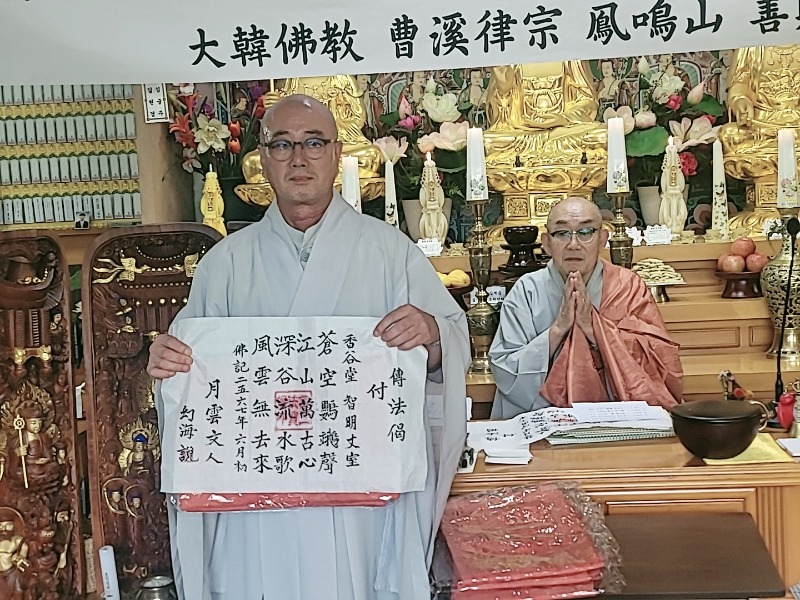 大韓佛教 曹溪律宗 鳳鳴山 善
傳法偈
付
香谷堂 智明丈室
蒼空鸚鵡聲
江山萬古心
深谷流水歌
風雲無去來
佛記二五六七年 六月 初
月雲文人
幻海說